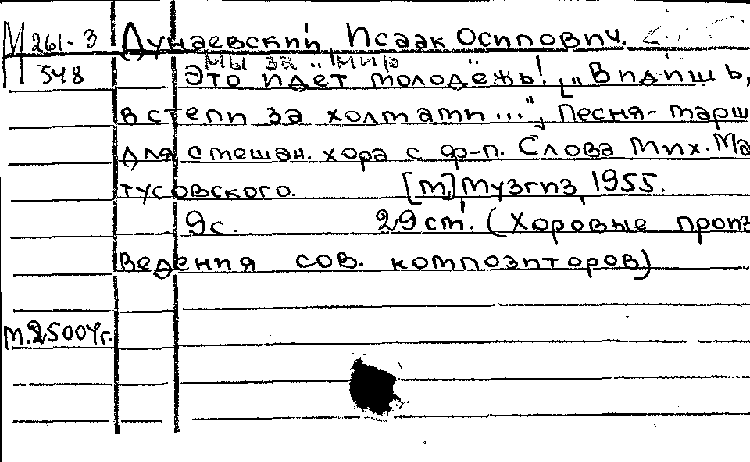 М 261-3
П 548
Дунаевский, Исаак Осипович.
Мы за мир
Это идет молодежь! ["Видишь,
в степи за холмами..."], Песня-марш
для смешан. хора с ф-п. Слова Мих. Ма
тусовского. [М] Музгиз, 1955.
9с. 29 см. (Хоровые произ
ведения сов. композиторов)
т. 25004г.